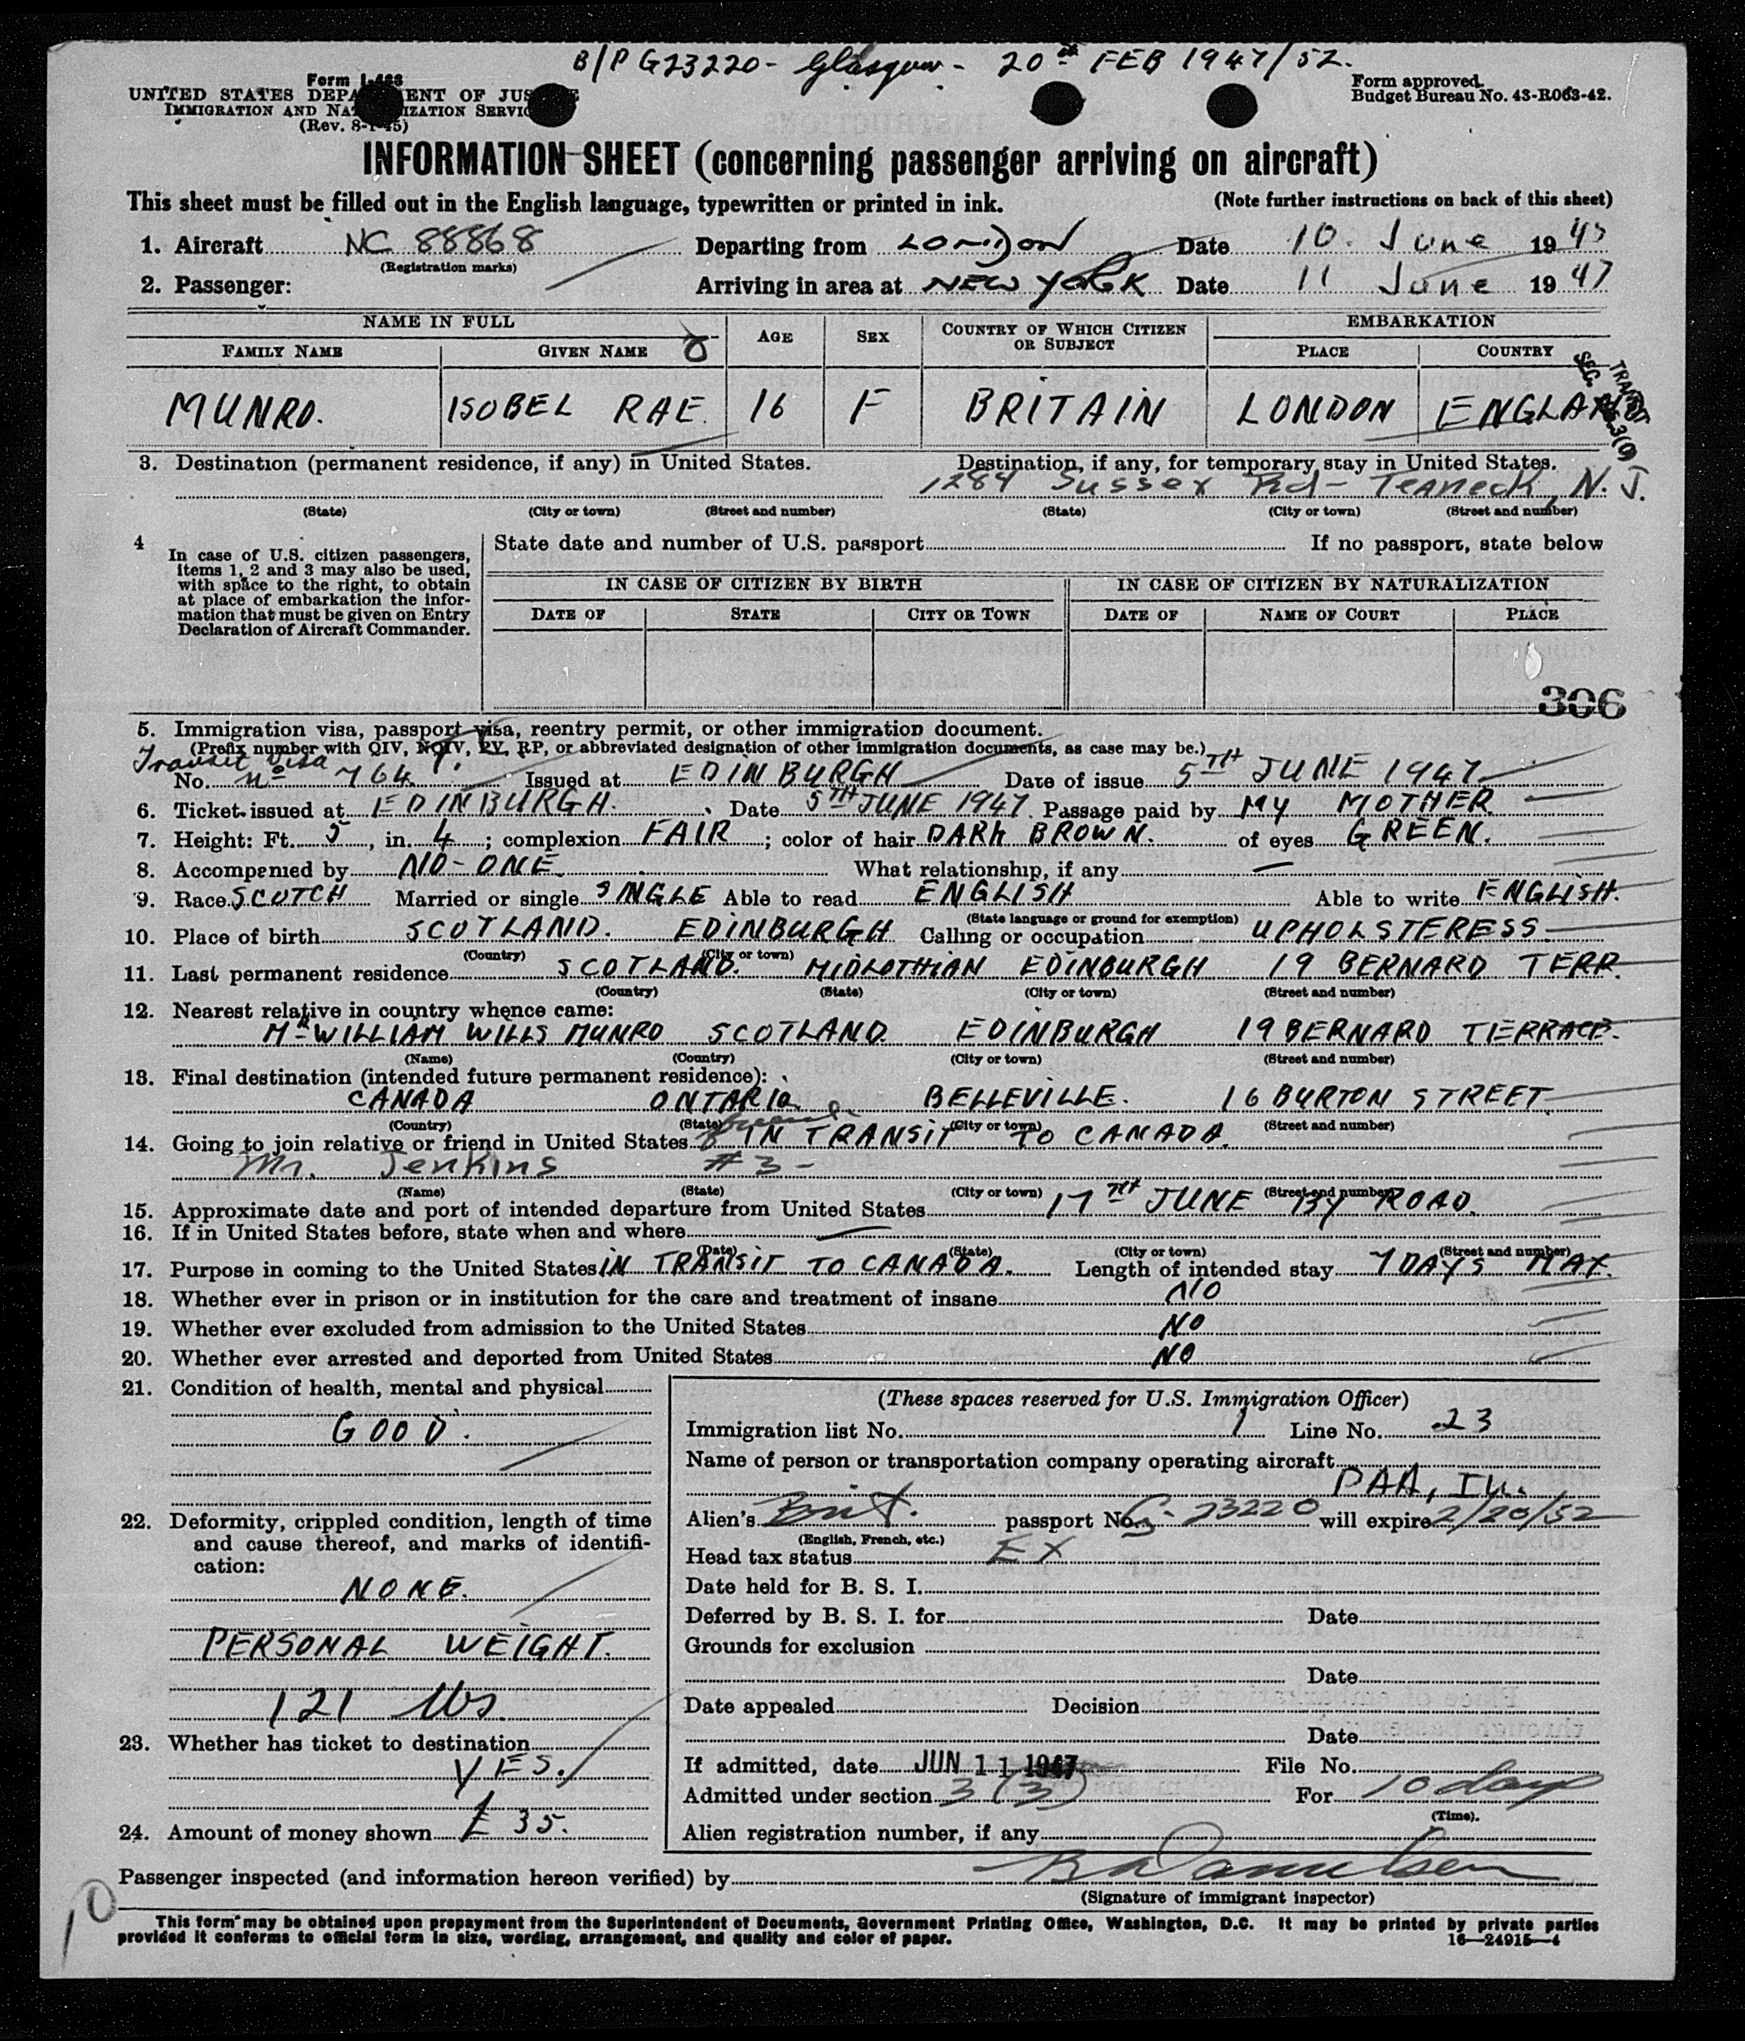 B/P G23220 - Glasgow - 20th FEB 1947/52.
Form I-466
UNITED STATES DEPA ENT OF JUS E
IMMIGRATION AND NAT IZATION SERVIC
(Rev. 8-1-45)
Form approved.
Budget Bureau No. 43-R063-42.
INFORMATION SHEET (concerning passenger arriving on aircraft)
This sheet must be filled out in the English language, typewritten or printed in ink. (Note further instructions on back of this sheet)
1. Aircraft NC 88868 Departing from LONDON Date 10. June 1947
(Registration marks)
2. Passenger: Arriving in area at NEW YORK Date 11 June 1947
NAME IN FULL AGE SEX COUNTRY OF WHICH CITIZEN OR SUBJECT EMBARKATION
FAMILY NAME GIVEN NAME PLACE COUNTRY
MUNRO. ISOBEL RAE. 16 F BRITAIN LONDON ENGLAND
TRANSIT
SEC. 3(3)
3. Destination (permanent residence, if any) in United States. Destination, if any, for temporary stay in United States.
1284 Sussex Rd - Teaneck, N.J.
(State) (City or town) (Street and number) (State) (City or town) (Street and number)
4 In case of U.S. citizen passengers, items 1, 2 and 3 may also be used, with space to the right, to obtain at place of embarkation the information that must be given on Entry Declaration of Aircraft Commander.
State date and number of U.S. passport If no passport, state below
IN CASE OF CITIZEN BY BIRTH IN CASE OF CITIZEN BY NATURALIZATION
DATE OF STATE CITY OR TOWN DATE OF NAME OF COURT PLACE
306
5. Immigration visa, passport visa, reentry permit, or other immigration document.
(Prefix number with QIV, NQIV, PV, RP, or abbreviated designation of other immigration documents, as case may be.)
Transit Visa
No. No 764. Issued at EDINBURGH Date of issue 5TH JUNE 1947
6. Ticket issued at EDINBURGH. Date 5TH JUNE 1947. Passage paid by MY MOTHER
7. Height: Ft. 5, in. 4; complexion FAIR; color of hair DARK BROWN. of eyes GREEN.
8. Accompanied by NO-ONE. What relationship, if any —
9. Race SCOTCH Married or single SINGLE Able to read ENGLISH Able to write ENGLISH.
(State language or ground for exemption)
10. Place of birth SCOTLAND. EDINBURGH Calling or occupation UPHOLSTERESS.
(Country) (City or town)
11. Last permanent residence SCOTLAND. MIDLOTHIAN EDINBURGH 19 BERNARD TERR.
(Country) (State) (City or town) (Street and number)
12. Nearest relative in country whence came:
MR WILLIAM WILLS MUNRO SCOTLAND. EDINBURGH 19 BERNARD TERRACE.
(Name) (Country) (City or town) (Street and number)
13. Final destination (intended future permanent residence):
CANADA ONTARIO. BELLEVILLE. 16 BURTON STREET.
(Country) (State) (City or town) (Street and number)
14. Going to join relative or friend in United States IN TRANSIT TO CANADA.
Mr. Jenkins #3 -
(Name) (State) (City or town) (Street and number)
15. Approximate date and port of intended departure from United States 17TH JUNE BY ROAD.
16. If in United States before, state when and where —
(Date) (State) (City or town) (Street and number)
17. Purpose in coming to the United States IN TRANSIT TO CANADA. Length of intended stay 7 DAYS MAX.
18. Whether ever in prison or in institution for the care and treatment of insane NO
19. Whether ever excluded from admission to the United States NO
20. Whether ever arrested and deported from United States NO
21. Condition of health, mental and physical
GOOD.
22. Deformity, crippled condition, length of time
and cause thereof, and marks of identifi-
cation:
NONE.
PERSONAL WEIGHT.
121 lbs.
23. Whether has ticket to destination
YES.
24. Amount of money shown £ 35.
(These spaces reserved for U.S. Immigration Officer)
Immigration list No. 1 Line No. 23
Name of person or transportation company operating aircraft
PAA, In.
Alien's Brit. passport No. G-23220 will expire 2/20/52
(English, French, etc.)
Head tax status EX
Date held for B. S. I.
Deferred by B. S. I. for Date
Grounds for exclusion
Date
Date appealed Decision
Date
If admitted, date JUN 11 1947 File No.
Admitted under section 3 (3) For 10 days
(Time).
Alien registration number, if any
Passenger inspected (and information hereon verified) by
(Signature of immigrant inspector)
10
This form may be obtained upon prepayment from the Superintendent of Documents, Government Printing Office, Washington, D.C. It may be printed by private parties
provided it conforms to official form in size, wording, arrangement, and quality and color of paper. 16—24915-4